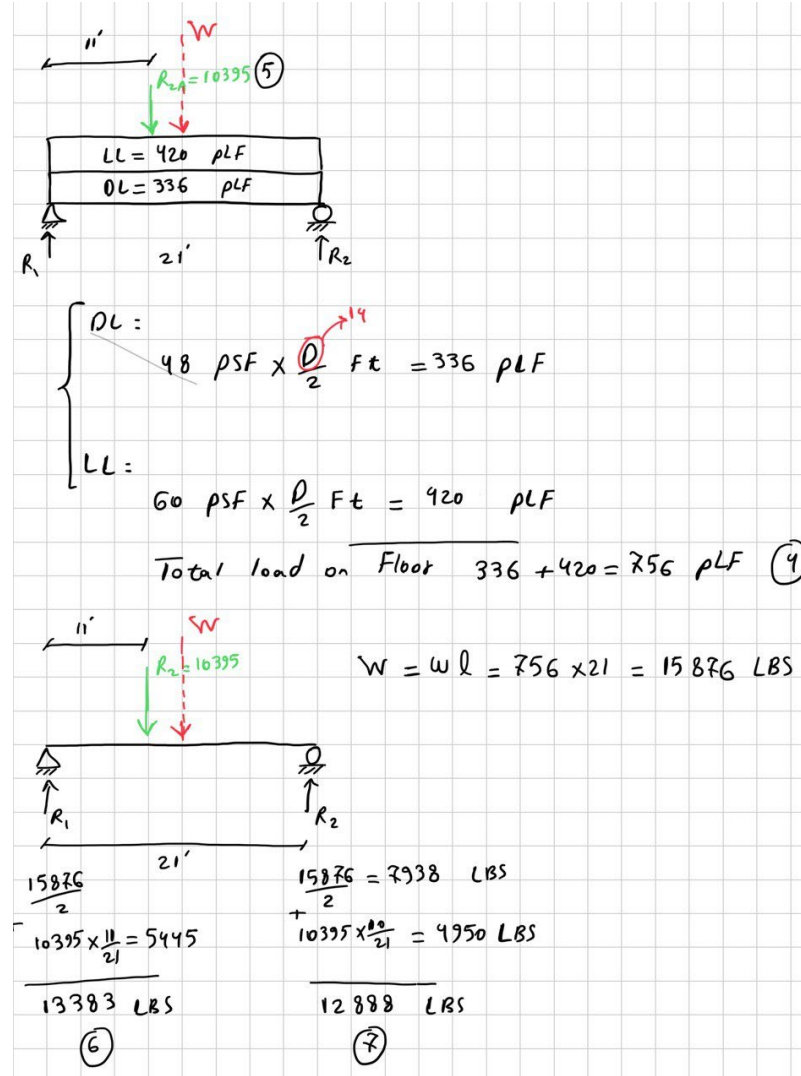 11'
W
R2A = 10395 (5)
LL = 420 PLF
DL = 336 PLF
R1
21'
R2
DL:
→ 14
48 PSF × D/2 Ft = 336 PLF
LL:
60 PSF × D/2 Ft = 420 PLF
Total load on Floor 336 + 420 = 756 PLF (4)
11'
W
R2 = 10395
W = wl = 756 × 21 = 15876 LBS
R1
R2
21'
15876/2
15876/2 = 7938 LBS
+
10395 × 11/21 = 5445
10395 × 10/21 = 4950 LBS
13383 LBS
12888 LBS
(6)
(7)